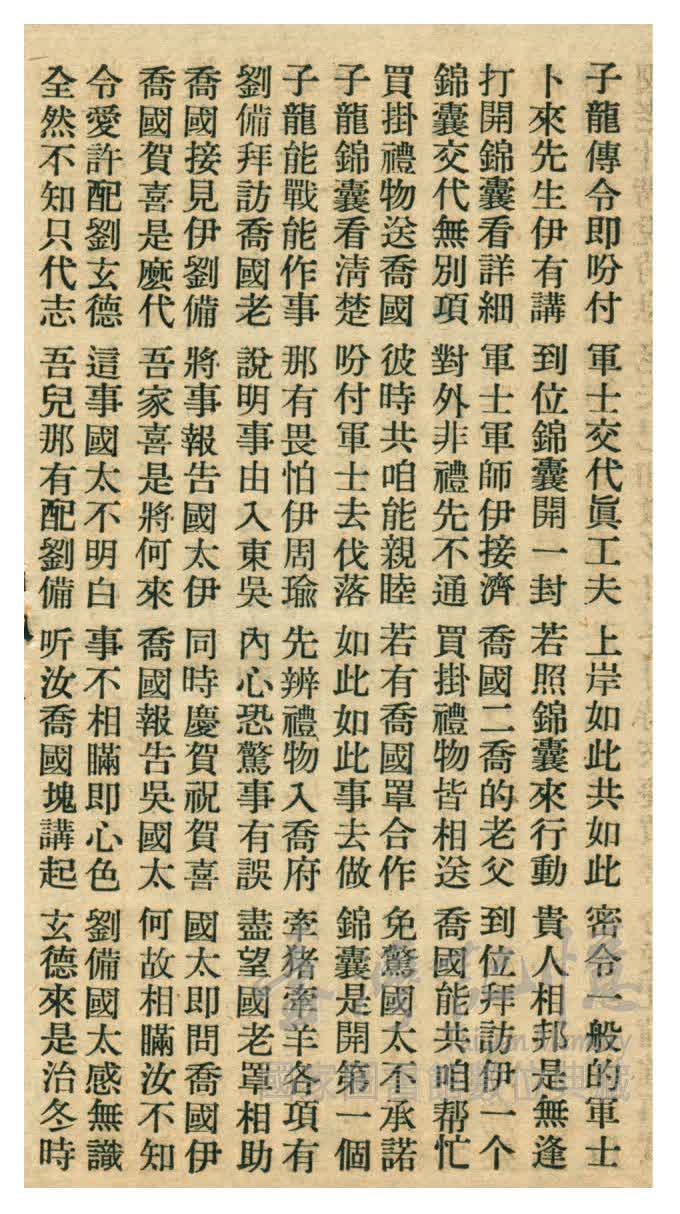 子龍傳令即吩付 軍士交代眞工夫 上岸如此共如此 密令一般的軍士
卜來先生伊有講 到位錦囊開一封 若照錦囊來行動 貴人相邦是無逢
打開錦囊看詳細 軍士軍師伊接濟 喬國二喬的老父 到位拜訪伊一个
錦囊交代無別項 對外非禮先不通 買掛禮物皆相送 喬國能共咱帮忙
買掛禮物送喬國 彼時共咱能親睦 若有喬國罩合作 免驚國太不承諾
子龍錦囊看淸楚 吩付軍士去伐落 如此如此事去做 錦囊是開第一個
子龍能戰能作事 那有畏怕伊周瑜 先辨禮物入喬府 牽猪牽羊各項有
劉備拜訪喬國老 說明事由入東吳 內心恐驚事有誤 盡望國老罩相助
喬國接見伊劉備 將事報告國太伊 同時慶賀祝賀喜 國太即問喬國伊
喬國賀喜是麼代 吾家喜是將何來 喬國報告吳國太 何故相瞞汝不知
令愛許配劉玄德 這事國太不明白 事不相瞞即心色 劉備國太感無識
全然不知只代志 吾兒那有配劉備 听汝喬國塊講起 玄德來是治冬時